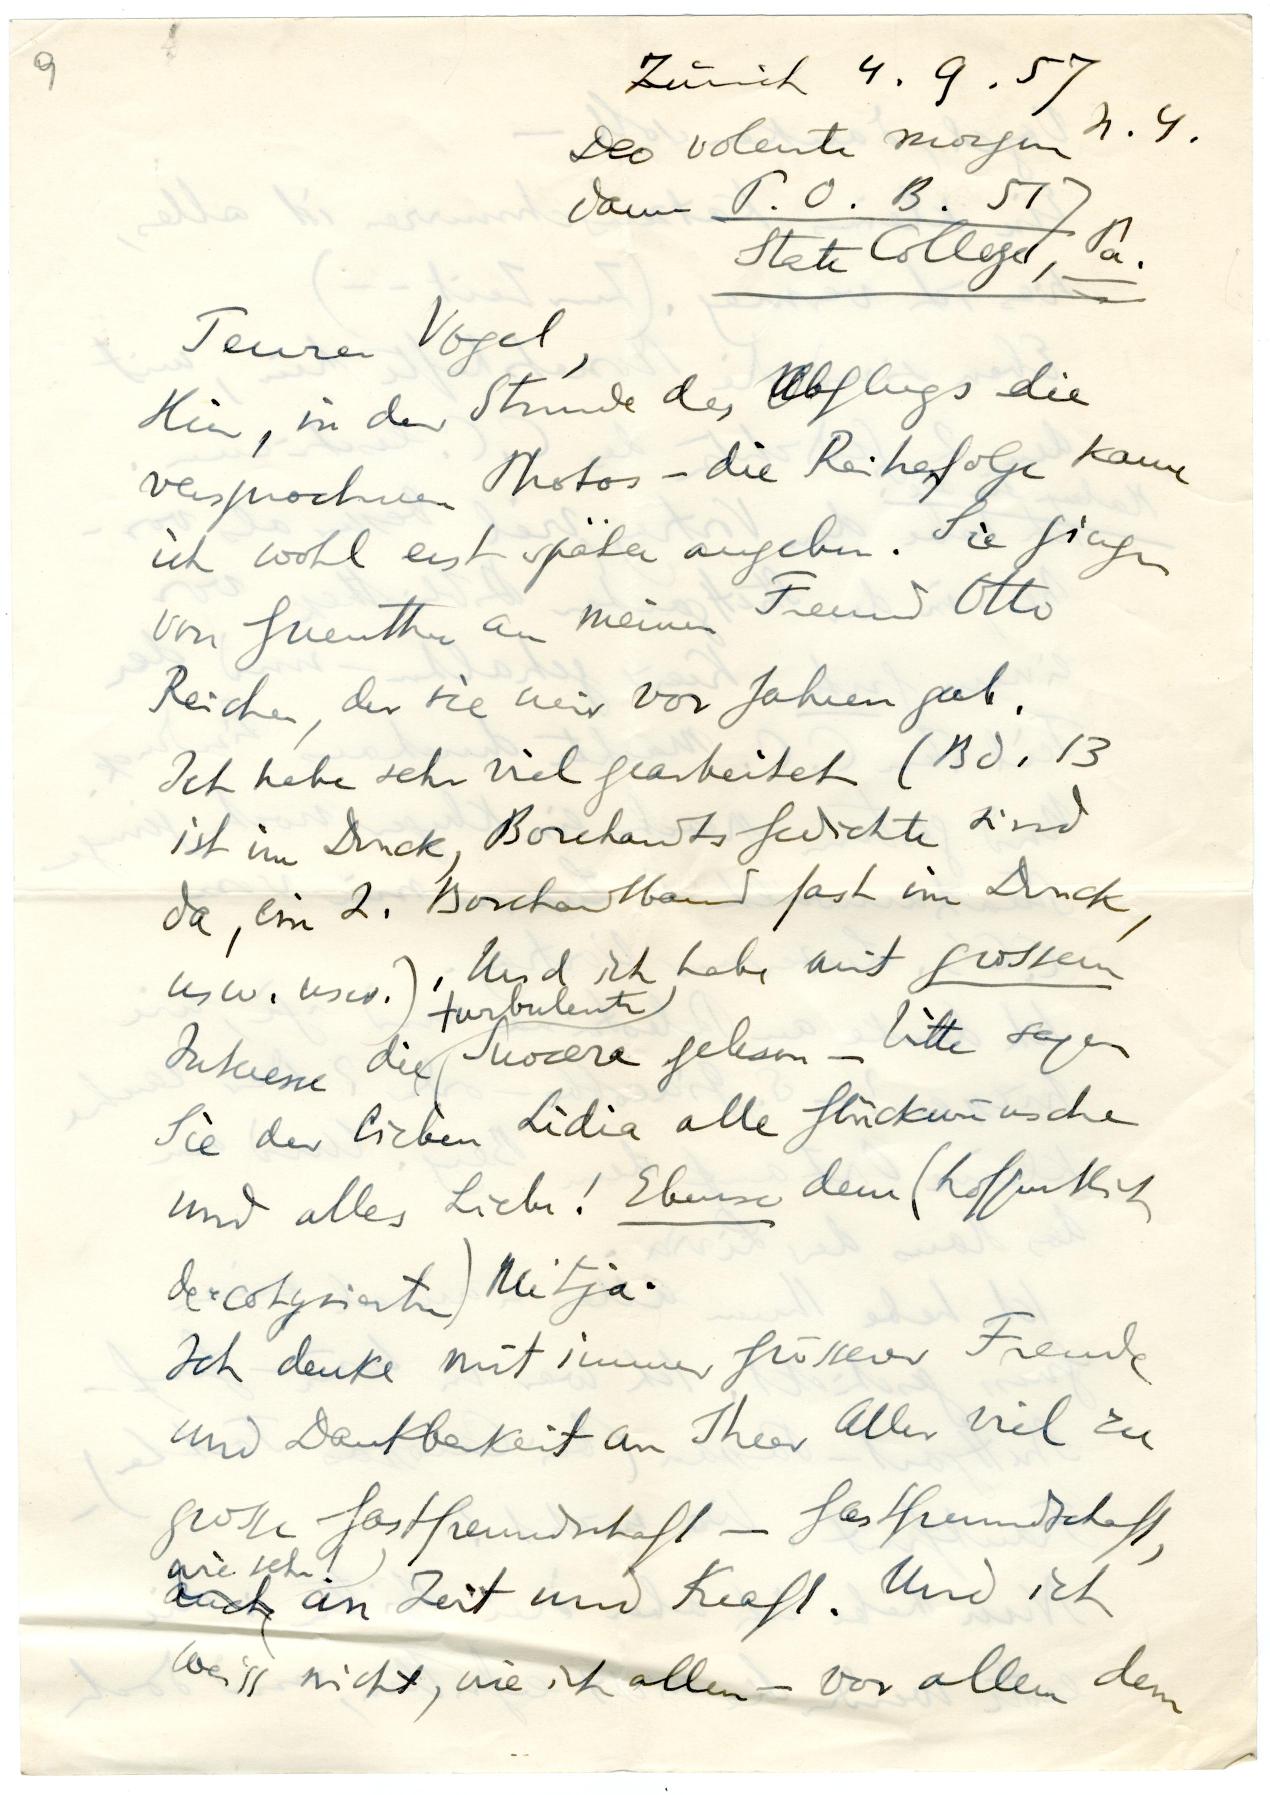 9
Zürich 4.9.57
Deo volente morgen N.Y.
dann P.O.B. 517
State College, Pa.
Teurer Vogel,
Hier, in der Stunde des Abflugs die
versprochnen Photos – die Reihenfolge kann
ich wohl erst später angeben. Sie gingen
von Guenther an meinen Freund Otto
Reicher, der sie mir vor Jahren gab.
Ich habe sehr viel gearbeitet (Bd. 13
ist im Druck, Borchardts Gedichte sind
da, ein 2. Borchardtband fast im Druck,
usw. usw.). Und ich habe mit grossem
turbulente
Interesse die Suocera gelesen – bitte sagen
Sie der lieben Lidia alle Glückwünsche
und alles Liebe! Ebenso dem (hoffentlich
Mitja.
Ich denke mit immer grösserer Freude
und Dankbarkeit an Ihrer Aller viel zu
grosse Gastfreundschaft – Gastfreundschaft,
wie sehr!
auch an Zeit und Kraft. Und ich
weiss nicht, wie ich allen – vor allem dem